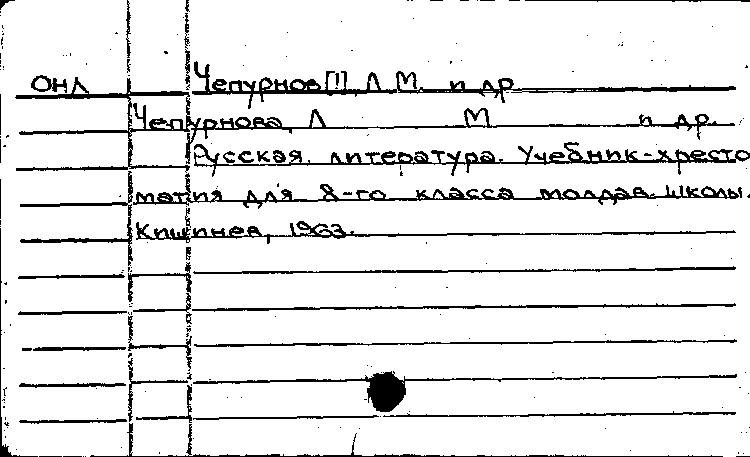 ОНЛ Чепурнов[!], Л.М. и др.
Чепурнова, Л М и др.
Русская литература. Учебник-хресто
матия для 8-го класса молдав. школы.
Кишинев, 1963.